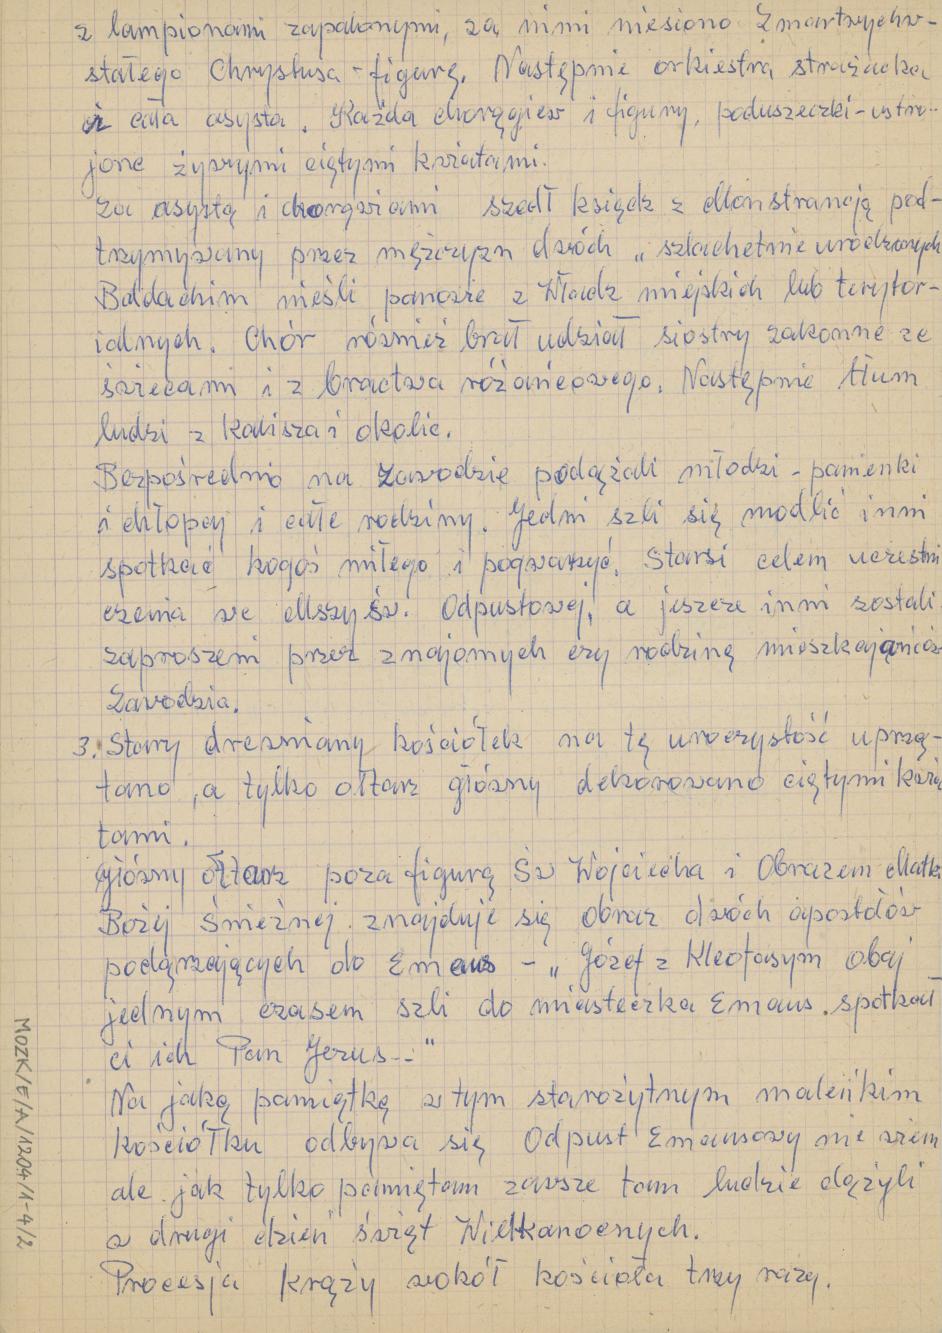 z lampionami zapalonymi, za nimi niesiono Zmartwychw-
stałego Chrystusa - figurę. Następnie orkiestra strażacka
i cała asysta. Każda chorągiew i figury, poduszeczki - ustro-
jone żywymi ciętymi kwiatami.
Za asystą i chorągwiami szedł ksiądz z Monstrancją pod-
trzymywany przez mężczyzn dwóch „szlachetnie urodzonych
Baldachim nieśli panowie z Władz miejskich lub terytor-
ialnych. Chór również brał udział siostry zakonne ze
świecami i z bractwa różańcowego. Następnie tłum
ludzi z Kalisza i okolic.
Bezpośrednio na Zawodzie podążali młodzi - panienki
i chłopcy i całe rodziny. Jedni szli się modlić inni
spotkać kogoś miłego i pogwarzyć. Starsi celem uczestni
czenia we Mszy św. Odpustowej, a jeszcze inni zostali
zaproszeni przez znajomych czy rodzinę mieszkającców
Zawodzia.
3. Stary drewniany kościółek na tę uroczystość uprzą-
tano, a tylko ołtarz główny dekorowano ciętymi kwia
tami.
Główny Ołtarz poza figurą Św Wojciecha i Obrazem Matki
Bożej Śnieżnej znajduje się obraz dwóch apostołów
podązających do Emaus - „Józef z Kleofasym obaj
jednym czasem szli do miasteczka Emaus. spotkał
ci ich Pan Jezus..."
Na jaką pamiątkę w tym starożytnym maleńkim
kościółku odbywa się Odpust Emausowy nie wiem
ale jak tylko pamiętam zawsze tam ludzie dążyli
w drugi dzień świąt Wielkanocnych.
Procesja krąży wokół kościoła trzy razy.
MOZK/E/A/1204/1-4/2